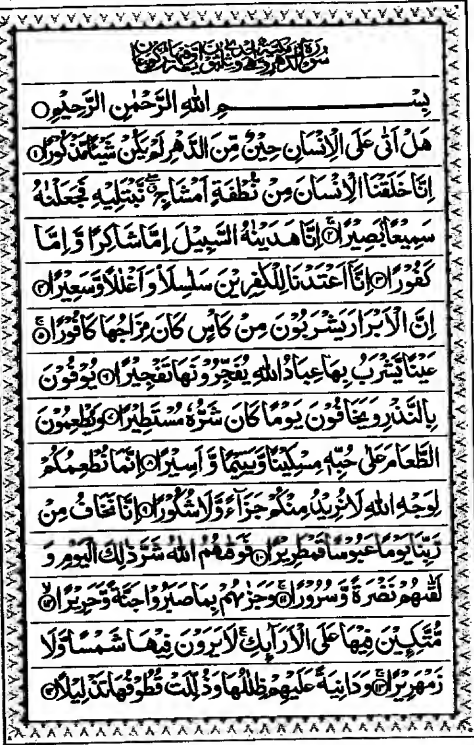 سُوْرَةُ الدَّهْرِ
بِسْمِ اللهِ الرَّحْمٰنِ الرَّحِيْمِ ○
هَلْ اَتٰى عَلَى الْاِنْسَانِ حِيْنٌ مِّنَ الدَّهْرِ لَمْ يَكُنْ شَيْئًا مَّذْكُوْرًا ۝۱
اِنَّا خَلَقْنَا الْاِنْسَانَ مِنْ نُّطْفَةٍ اَمْشَاجٍ ۖ نَّبْتَلِيْهِ فَجَعَلْنٰهُ
سَمِيْعًۢا بَصِيْرًا ۝۲ اِنَّا هَدَيْنٰهُ السَّبِيْلَ اِمَّا شَاكِرًا وَّ اِمَّا
كَفُوْرًا ۝۳ اِنَّاۤ اَعْتَدْنَا لِلْكٰفِرِيْنَ سَلٰسِلَاۡ وَ اَغْلٰلًا وَّ سَعِيْرًا ۝۴
اِنَّ الْاَبْرَارَ يَشْرَبُوْنَ مِنْ كَاْسٍ كَانَ مِزَاجُهَا كَافُوْرًا ۝۵
عَيْنًا يَّشْرَبُ بِهَا عِبَادُ اللهِ يُفَجِّرُوْنَهَا تَفْجِيْرًا ۝۶ يُوْفُوْنَ
بِالنَّذْرِ وَ يَخَافُوْنَ يَوْمًا كَانَ شَرُّهٗ مُسْتَطِيْرًا ۝۷ وَ يُطْعِمُوْنَ
الطَّعَامَ عَلٰى حُبِّهٖ مِسْكِيْنًا وَّ يَتِيْمًا وَّ اَسِيْرًا ۝۸ اِنَّمَا نُطْعِمُكُمْ
لِوَجْهِ اللهِ لَا نُرِيْدُ مِنْكُمْ جَزَآءً وَّ لَا شُكُوْرًا ۝۹ اِنَّا نَخَافُ مِنْ
رَّبِّنَا يَوْمًا عَبُوْسًا قَمْطَرِيْرًا ۝۱۰ فَوَقٰىهُمُ اللهُ شَرَّ ذٰلِكَ الْيَوْمِ وَ
لَقّٰىهُمْ نَضْرَةً وَّ سُرُوْرًا ۝۱۱ وَ جَزٰىهُمْ بِمَا صَبَرُوْا جَنَّةً وَّ حَرِيْرًا ۝۱۲
مُّتَّكِـِٕيْنَ فِيْهَا عَلَى الْاَرَآىِٕكِ ۚ لَا يَرَوْنَ فِيْهَا شَمْسًا وَّ لَا
زَمْهَرِيْرًا ۝۱۳ وَ دَانِيَةً عَلَيْهِمْ ظِلٰلُهَا وَ ذُلِّلَتْ قُطُوْفُهَا تَذْلِيْلًا ۝۱۴